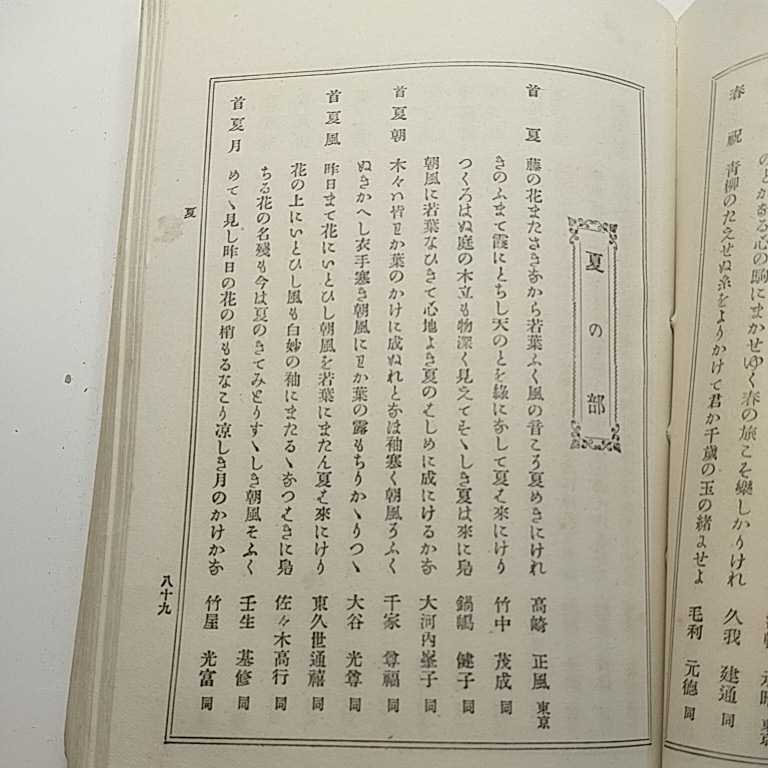 のとかなる心の駒にまかせゆく春の旅こそ樂しかりけれ 久我 建通 同
春祝 青柳のたえせぬ糸をよりかけて君か千歳の玉の緒にせよ 毛利 元德 同
夏の部
首夏 藤の花またさきなから若葉ふく風の音こそ夏めきにけれ 高崎 正風 東京
きのふまて霞にとちし天のとを綠になして夏は來にけり 竹中 茂成 同
つくろはぬ庭の木立も物深く見えてすゝしき夏は來に鳧 鍋嶋 健子 同
朝風に若葉なひきて心地よき夏のはしめに成にけるかな 大河內峯子 同
首夏朝 木々は皆わか葉のかけに成ぬれとなほ袖寒く朝風そふく 千家 尊福 同
ぬきかへし衣手寒き朝風にわか葉の露もちりかゝりつゝ 大谷 光尊 同
首夏風 昨日まて花にいとひし朝風を若葉にまたん夏は來にけり 東久世通禧 同
花の上にいとひし風も白妙の袖にまたるゝなつはきに鳧 佐々木高行 同
ちる花の名殘も今は夏のきてみとりすゝしき朝風そふく 壬生 基修 同
首夏月 めてゝ見し昨日の花の梢もるなこり凉しき月のかけかな 竹屋 光富 同
夏
八十九